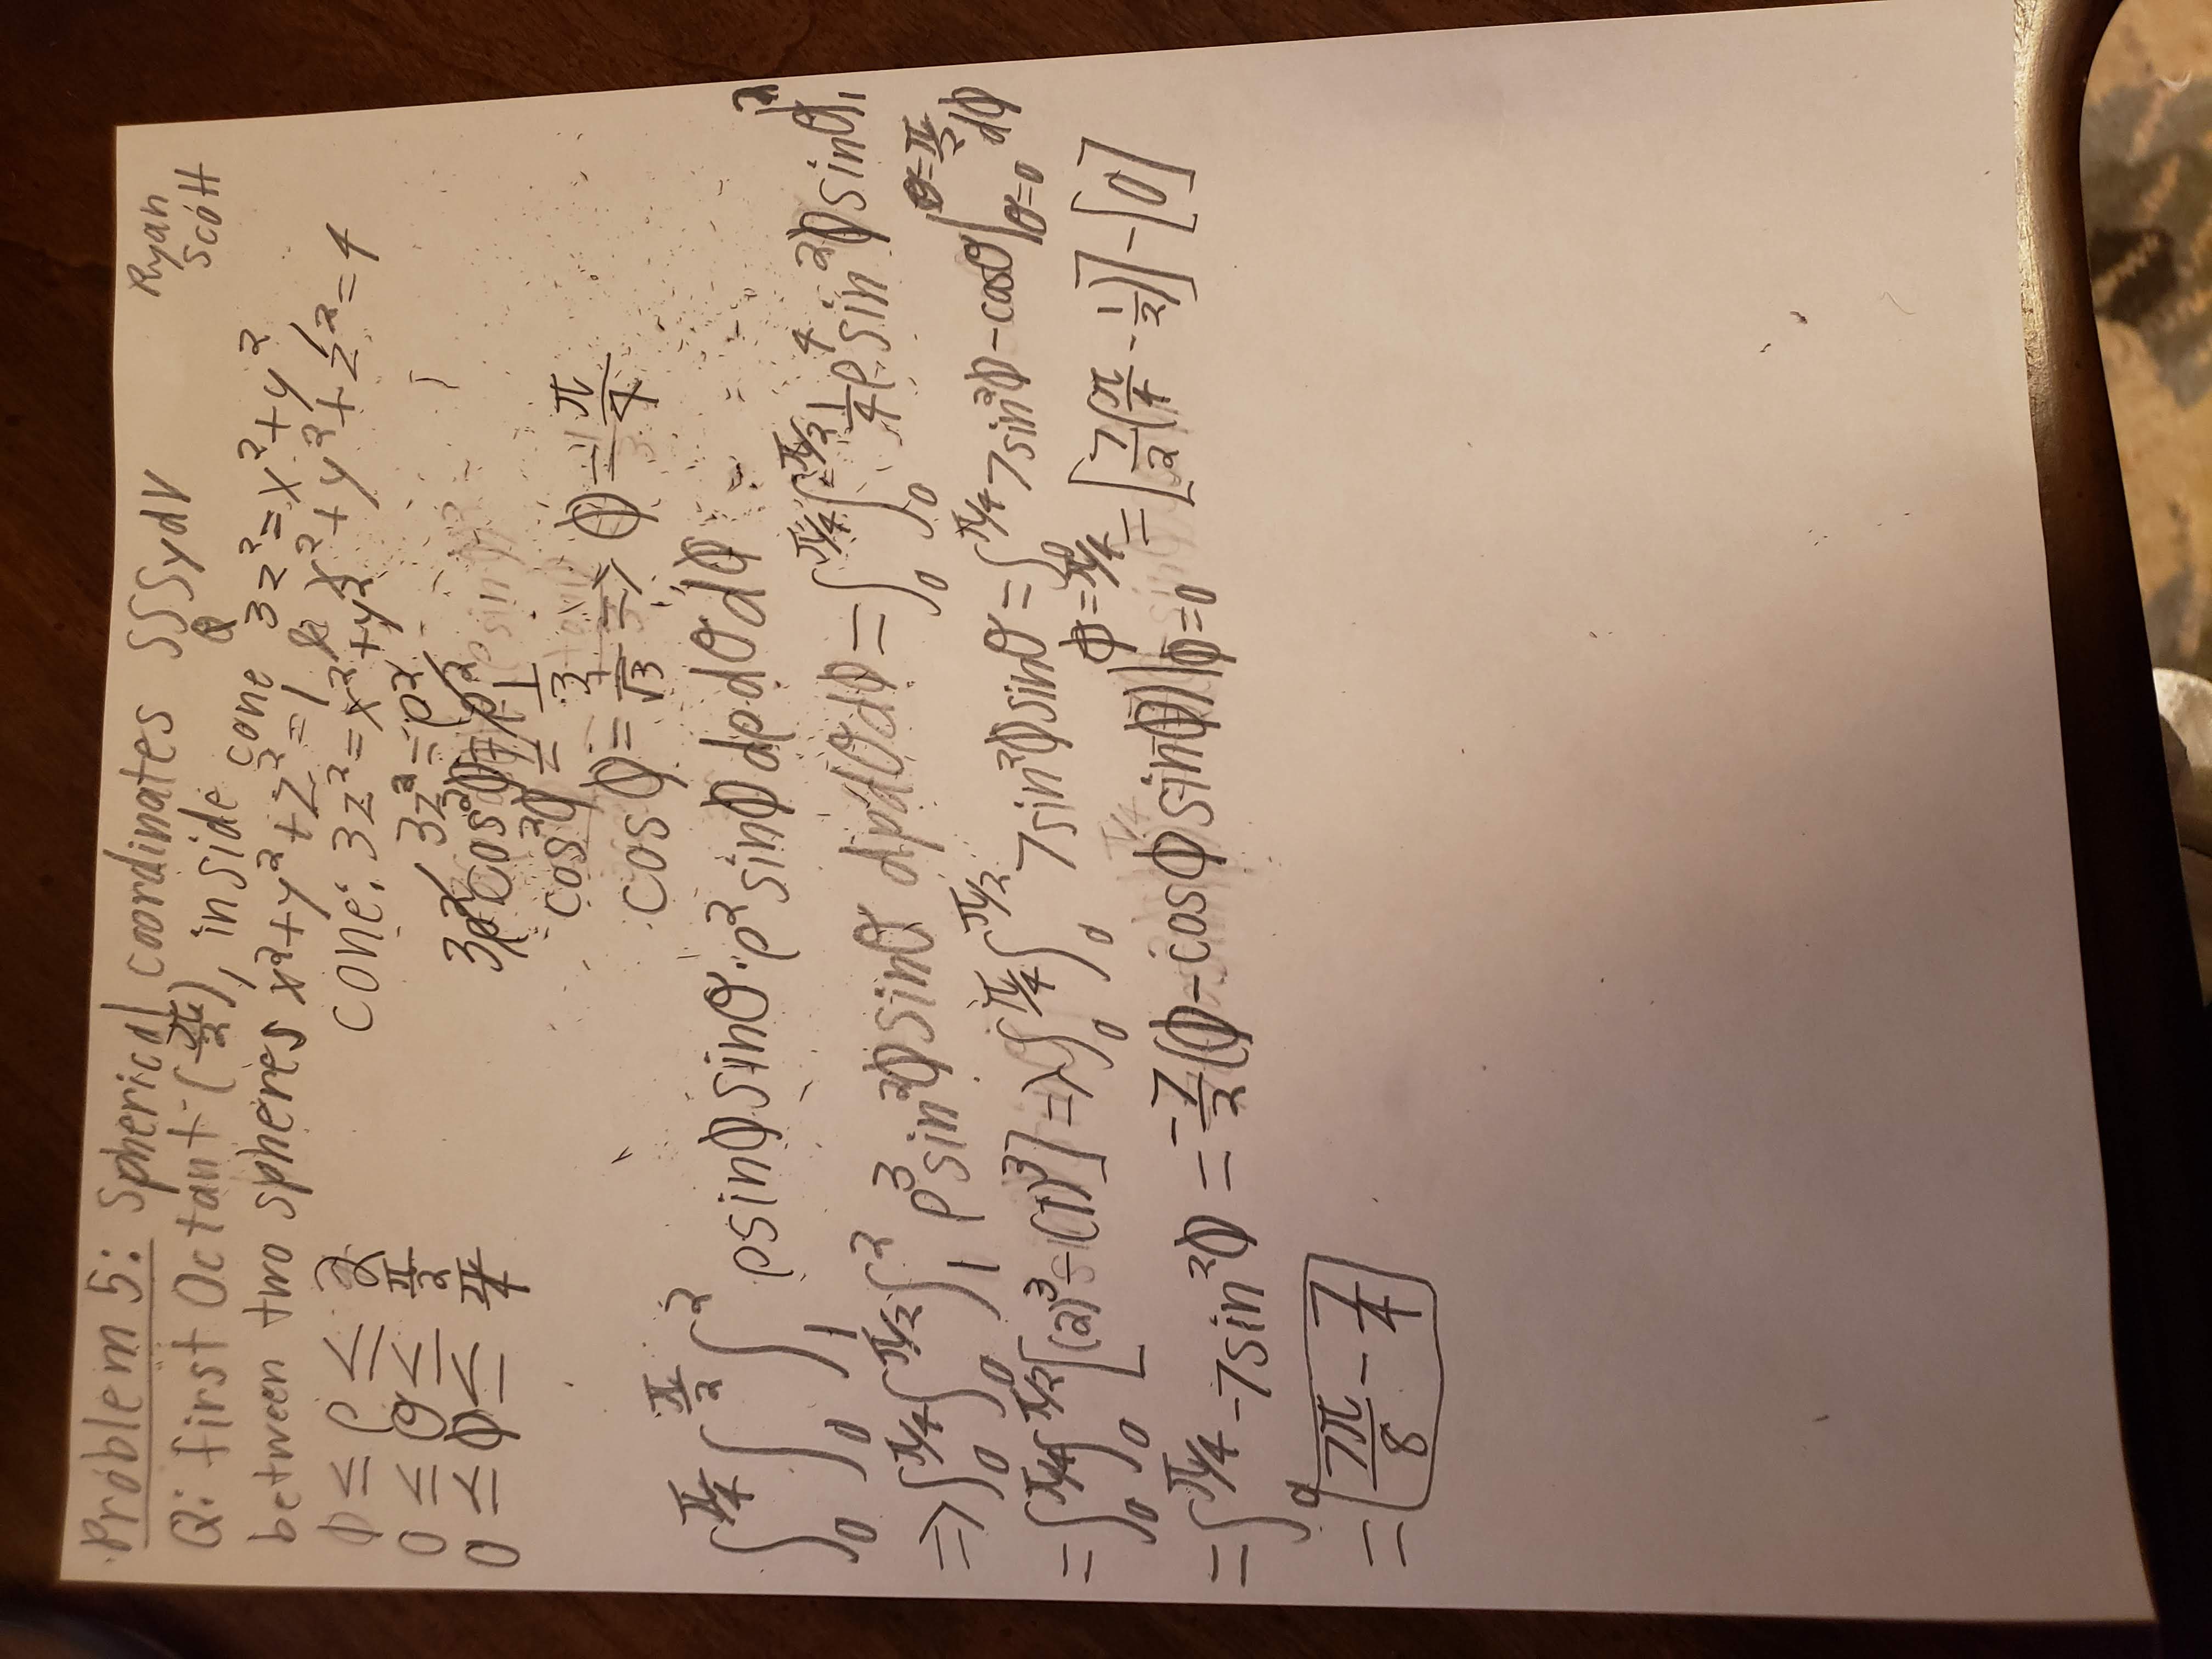 Problem 5: Spherical coordinates ∫∫∫_Q y dV
Ryan Scott
Q: first Octant (π/2), inside cone 3z² = x² + y²
between two spheres x² + y² + z² = 1 & x² + y² + z² = 4
ϕ ≤ ρ ≤ 2
0 ≤ θ ≤ π/2
0 ≤ ϕ ≤ π/4
cone: 3z² = x² + y²
3z² = ρ²
3ρ² cos²ϕ = ρ²
cos²ϕ = 1/3
cosϕ = 1/√3 => ϕ = π/4
∫_0^{π/4} ∫_0^{π/2} ∫_1^2 ρ sinϕ sinθ · ρ² sinϕ dρ dθ dϕ
=> ∫_0^{π/4} ∫_0^{π/2} ∫_1^2 ρ³ sin²ϕ sinθ dρ dθ dϕ = ∫_0^{π/4} ∫_0^{π/2} 1/4 ρ⁴ sin²ϕ sinθ |_1^2
= ∫_0^{π/4} ∫_0^{π/2} [(2)³ - (1)³] => ∫_0^{π/4} ∫_0^{π/2} 7 sin²ϕ sinθ = ∫_0^{π/4} 7 sin²ϕ - cosθ |_{θ=0}^{θ=π/2} dϕ
= ∫_0^{π/4} -7 sin²ϕ = -7/2 (ϕ - cosϕ sinϕ) |_{ϕ=0}^{ϕ=π/4} = [7/2 (π/4 - 1/2)] - [0]
= 7π/8 - 7/4